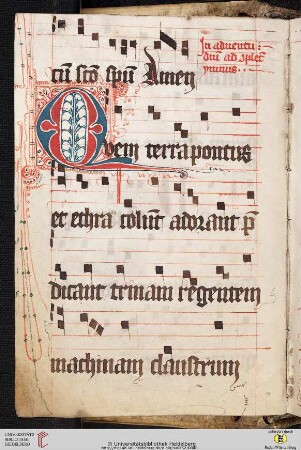 tuı sco spu Amen
In aduentu
dm̄ ad
ymnus
Quem terra pontus
et ethra colūt adorant p̄
dicant trinam regentem
machinam claustrum
UNIVERSITÄTS-
BIBLIOTHEK
HEIDELBERG
© Universitätsbibliothek Heidelberg